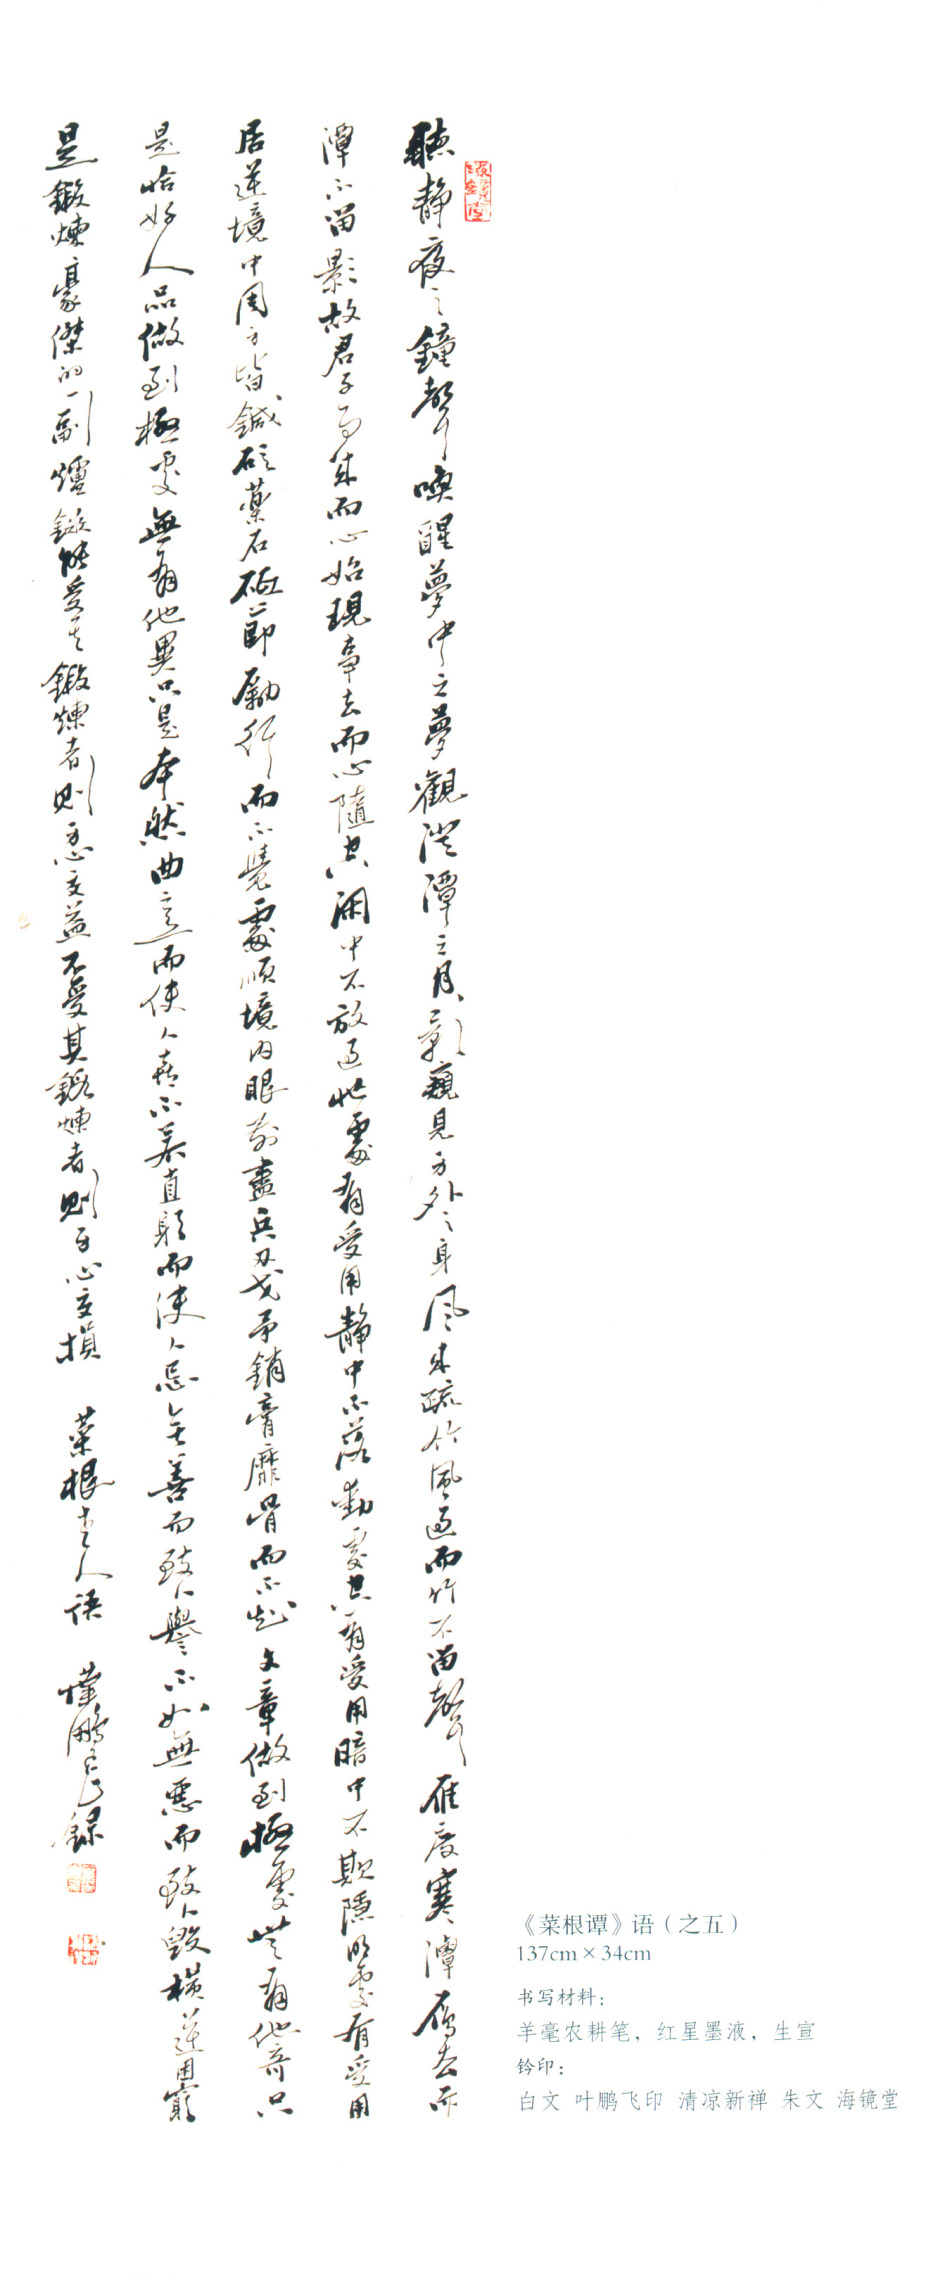 聽静夜之鐘聲喚醒夢中之夢觀澄潭之月影窺見身外之身風來疏竹風過而竹不留聲雁度寒潭雁去而
潭不留影故君子事來而心始現事去而心隨空閑中不放過忙處有受用静中不落空動處有受用暗中不欺隱明處有受用
居逆境中周身皆鍼砭藥石砥節勵行而不覺處順境内眼前盡兵刃戈矛銷膏靡骨而不知文章做到極處無有他奇只
是恰好人品做到極處無有他異只是本然曲意而使人喜不若直躬而使人忌無善而致人譽不如無惡而致人毀横逆困窮
是鍛煉豪傑的一副爐錘能受其鍛煉者則身心交益不受其鍛煉者則身心交損 菜根 人語 鵬飛 錄
《菜根谭》语（之五）
137cm×34cm
书写材料：
羊毫农耕笔，红星墨液，生宣
钤印：
白文 叶鹏飞印 清凉新禅 朱文 海镜堂